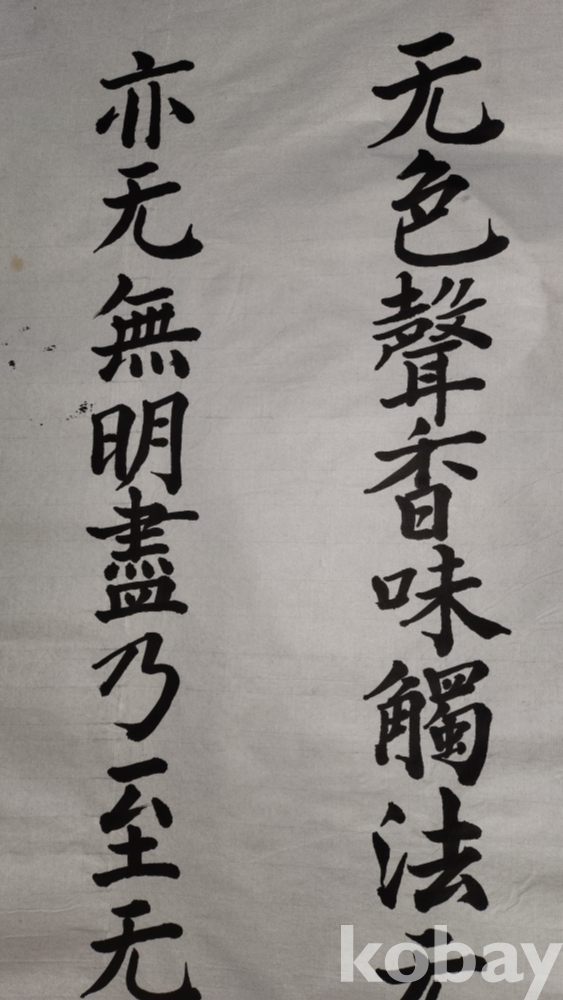 无色聲香味觸法无
亦无無明盡乃至无
kobay